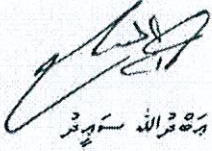 ޢަބްދުﷲ ސަޢީދު